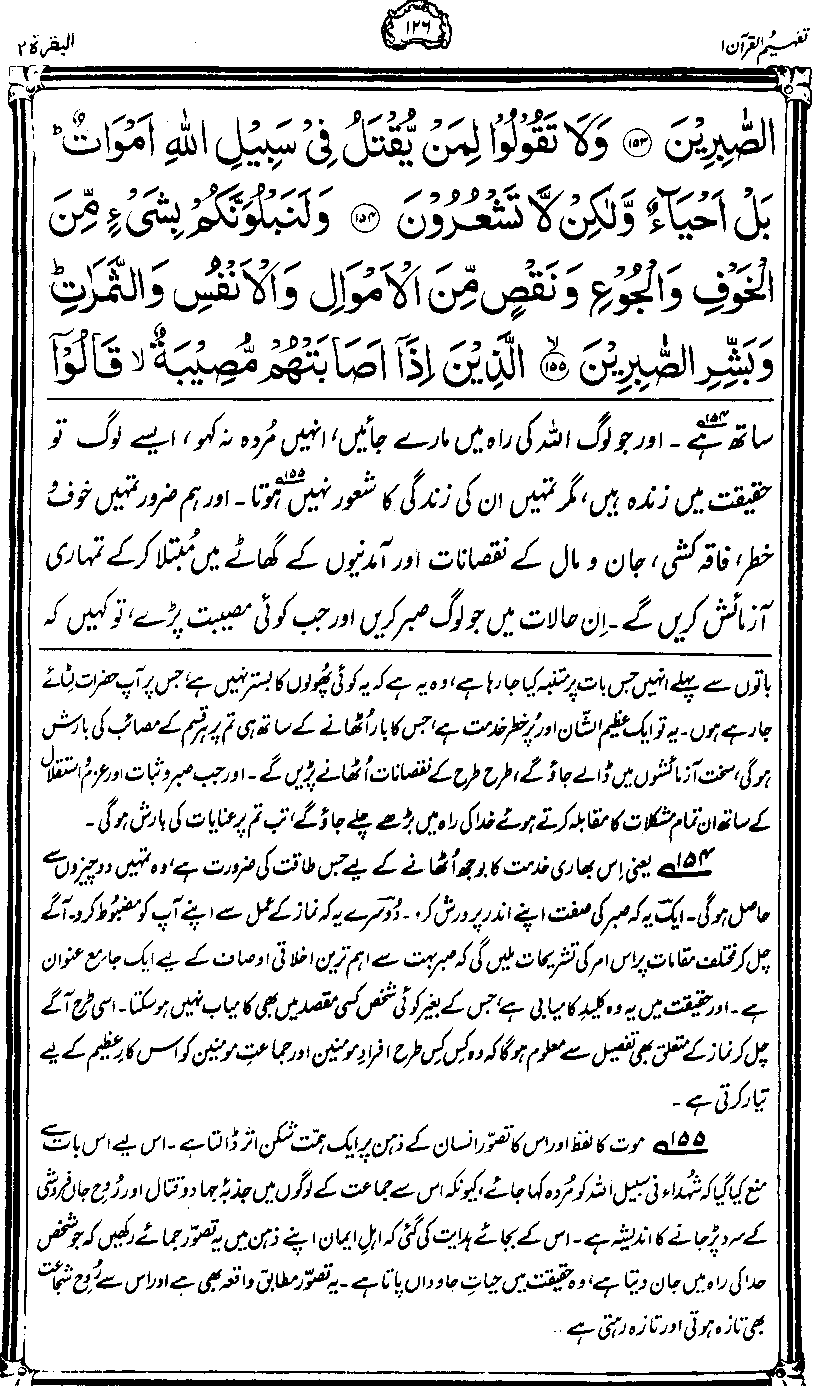 تفہیم القرآن ۱
۱۲۶
البقرۃ ۲
الصّٰبِرِيْنَ ﴿۱۵۳﴾ وَلَا تَقُوْلُوْا لِمَنْ يُّقْتَلُ فِيْ سَبِيْلِ اللّٰهِ اَمْوَاتٌ ؕ
بَلْ اَحْيَآءٌ وَّلٰكِنْ لَّا تَشْعُرُوْنَ ﴿۱۵۴﴾ وَلَنَبْلُوَنَّكُمْ بِشَيْءٍ مِّنَ
الْخَوْفِ وَالْجُوْعِ وَنَقْصٍ مِّنَ الْاَمْوَالِ وَالْاَنْفُسِ وَالثَّمَرٰتِ ؕ
وَبَشِّرِ الصّٰبِرِيْنَ ﴿۱۵۵﴾ۙ الَّذِيْنَ اِذَآ اَصَابَتْهُمْ مُّصِيْبَةٌ ۙ قَالُوْٓا
ساتھ ہے۱۵۴۔ اور جو لوگ اللہ کی راہ میں مارے جائیں، انہیں مُردہ نہ کہو، ایسے لوگ تو
حقیقت میں زندہ ہیں، مگر تمہیں ان کی زندگی کا شعور نہیں ہوتا۱۵۵۔ اور ہم ضرور تمہیں خوف و
خطر، فاقہ کشی، جان و مال کے نقصانات اور آمدنیوں کے گھاٹے میں مُبتلا کر کے تمہاری
آزمائش کریں گے۔ اِن حالات میں جو لوگ صبر کریں اور جب کوئی مصیبت پڑے، تو کہیں کہ
باتوں سے پہلے انہیں جس بات پر متنبہ کیا جا رہا ہے، وہ یہ ہے کہ یہ کوئی پھولوں کا بستر نہیں ہے، جس پر آپ حضرات لِٹائے
جا رہے ہوں۔ یہ تو ایک عظیم الشّان اور پُر خطر خدمت ہے، جس کا بار اُٹھانے کے ساتھ ہی تم پر ہر قسم کے مصائب کی بارش
ہوگی، سخت آزمائشوں میں ڈالے جاؤ گے، طرح طرح کے نقصانات اُٹھانے پڑیں گے۔ اور جب صبر و ثبات اور عزم و استقلال
کے ساتھ ان تمام مشکلات کا مقابلہ کرتے ہوئے خدا کی راہ میں بڑھے چلے جاؤ گے، تب تم پر عنایات کی بارش ہوگی۔
۱۵۴ یعنی اِس بھاری خدمت کا بوجھ اُٹھانے کے لیے جس طاقت کی ضرورت ہے، وہ تمہیں دو چیزوں سے
حاصل ہوگی۔ ایک یہ کہ صبر کی صفت اپنے اندر پرورش کرو۔ دُوسرے یہ کہ نماز کے عمل سے اپنے آپ کو مضبوط کرو۔ آگے
چل کر مختلف مقامات پر اس امر کی تشریحات ملیں گی کہ صبر بہت سے اہم ترین اخلاقی اوصاف کے لیے ایک جامع عنوان
ہے۔ اور حقیقت میں یہ وہ کلیدِ کامیابی ہے، جس کے بغیر کوئی شخص کسی مقصد میں بھی کامیاب نہیں ہو سکتا۔ اسی طرح آگے
چل کر نماز کے متعلق بھی تفصیل سے معلوم ہوگا کہ وہ کِس کِس طرح افرادِ مومنین اور جماعتِ مومنین کو اس کارِ عظیم کے لیے
تیار کرتی ہے۔
۱۵۵ موت کا لفظ اور اس کا تصوّر انسان کے ذہن پر ایک ہمّت شکن اثر ڈالتا ہے۔ اس لیے اس بات سے
منع کیا گیا کہ شُہداء فی سبیل اللہ کو مُردہ کہا جائے، کیونکہ اس سے جماعت کے لوگوں میں جذبۂ جہاد و قتال اور رُوحِ جاں فروشی
کے سرد پڑ جانے کا اندیشہ ہے۔ اس کے بجائے ہدایت کی گئی کہ اہلِ ایمان اپنے ذہن میں یہ تصوّر جمائے رکھیں کہ جو شخص
خدا کی راہ میں جان دیتا ہے، وہ حقیقت میں حیاتِ جاوداں پاتا ہے۔ یہ تصوّر مطابق واقعہ بھی ہے اور اس سے رُوحِ شجاعت
بھی تازہ ہوتی اور تازہ رہتی ہے۔